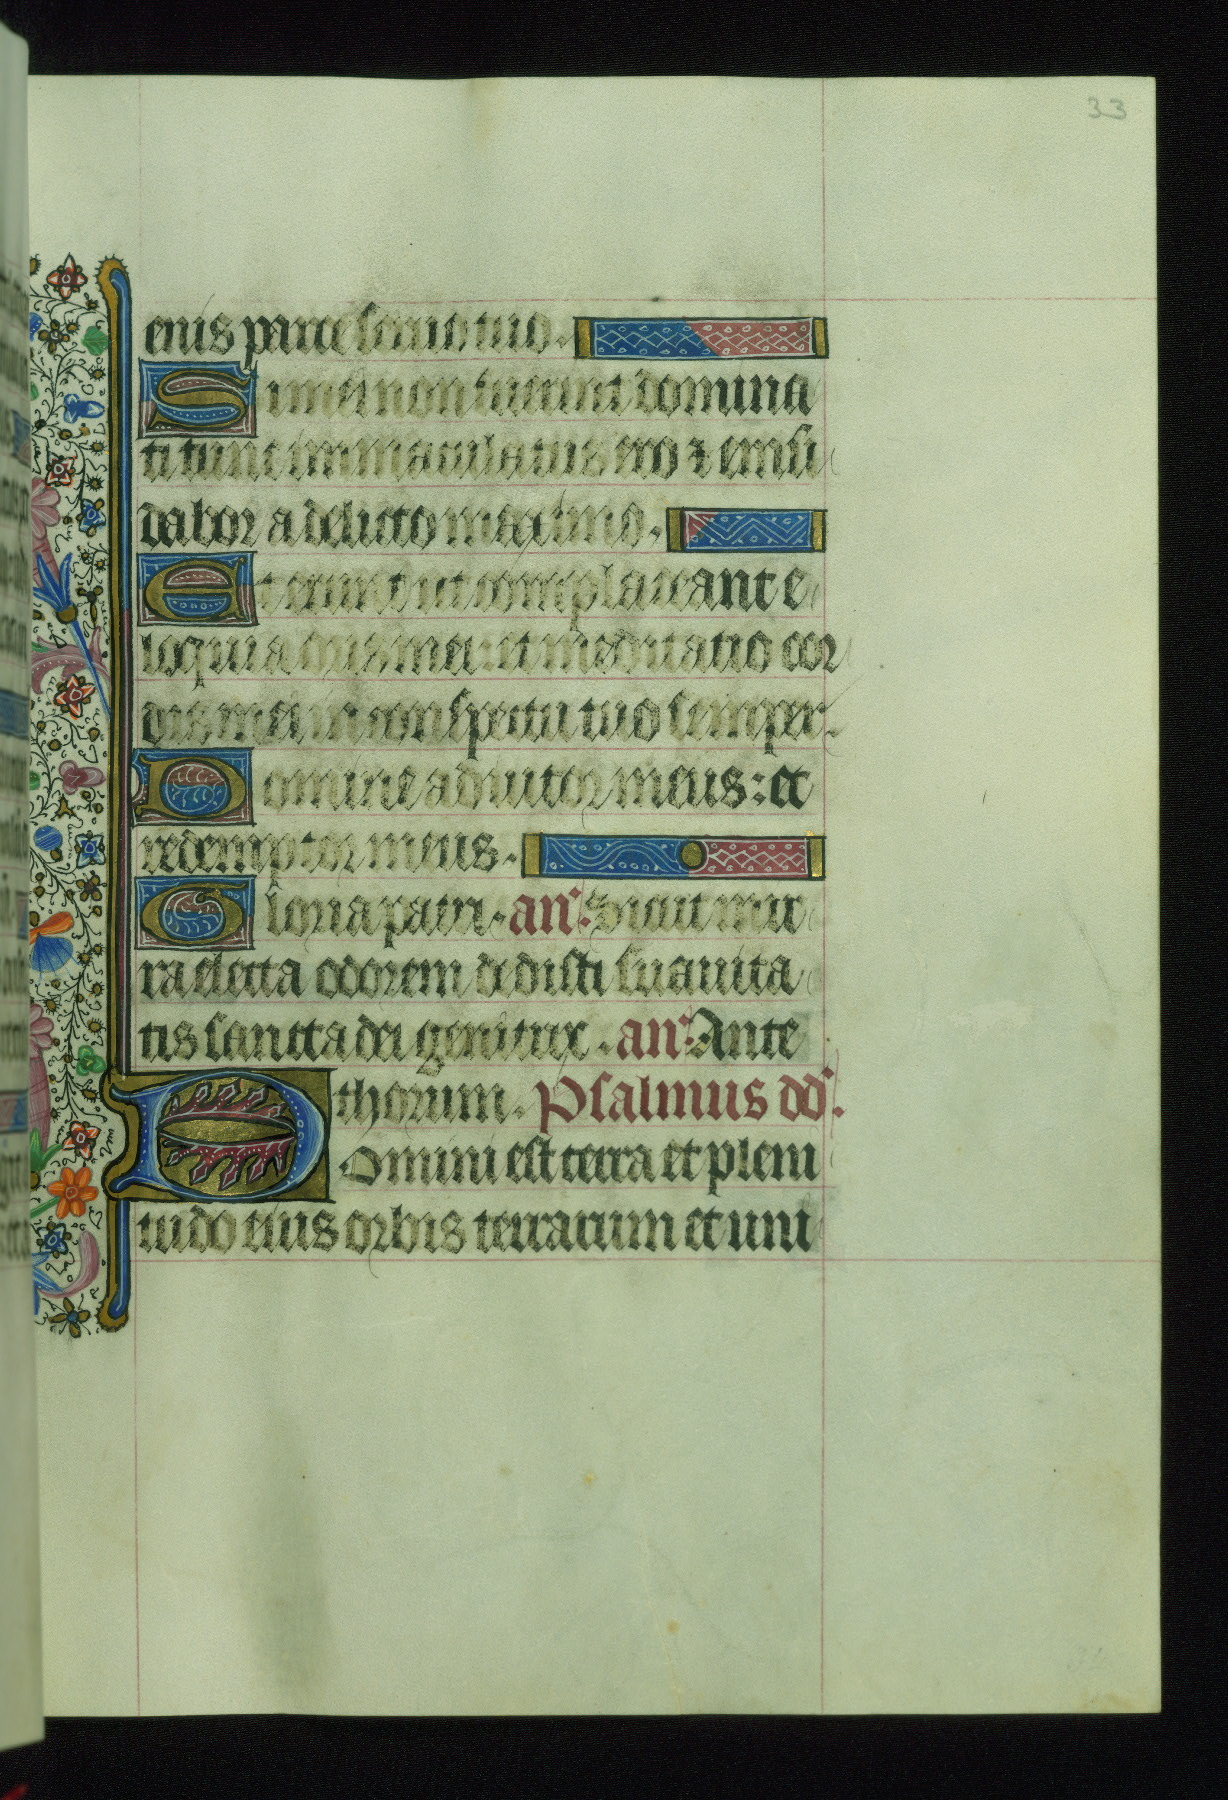 33
enis parce seruo tuo.
Si mei non fuerint domina
ti tunc immaculatus ero ⁊ emũ
dabor a delicto maximo.
Et erunt ut complaceant e
loquia oris mei: et meditatio cor
dis mei in conspectu tuo semper.
Domine adiutor meus: et
redemptor meus.
Gloria patri. an̄. Sicut mir
ra electa odorem dedisti suauita
tis sancta dei genitrix. an̄. Ante
thorum. Psalmus dd̄.
Domini est terra et pleni
tudo eius orbis terrarum et uni